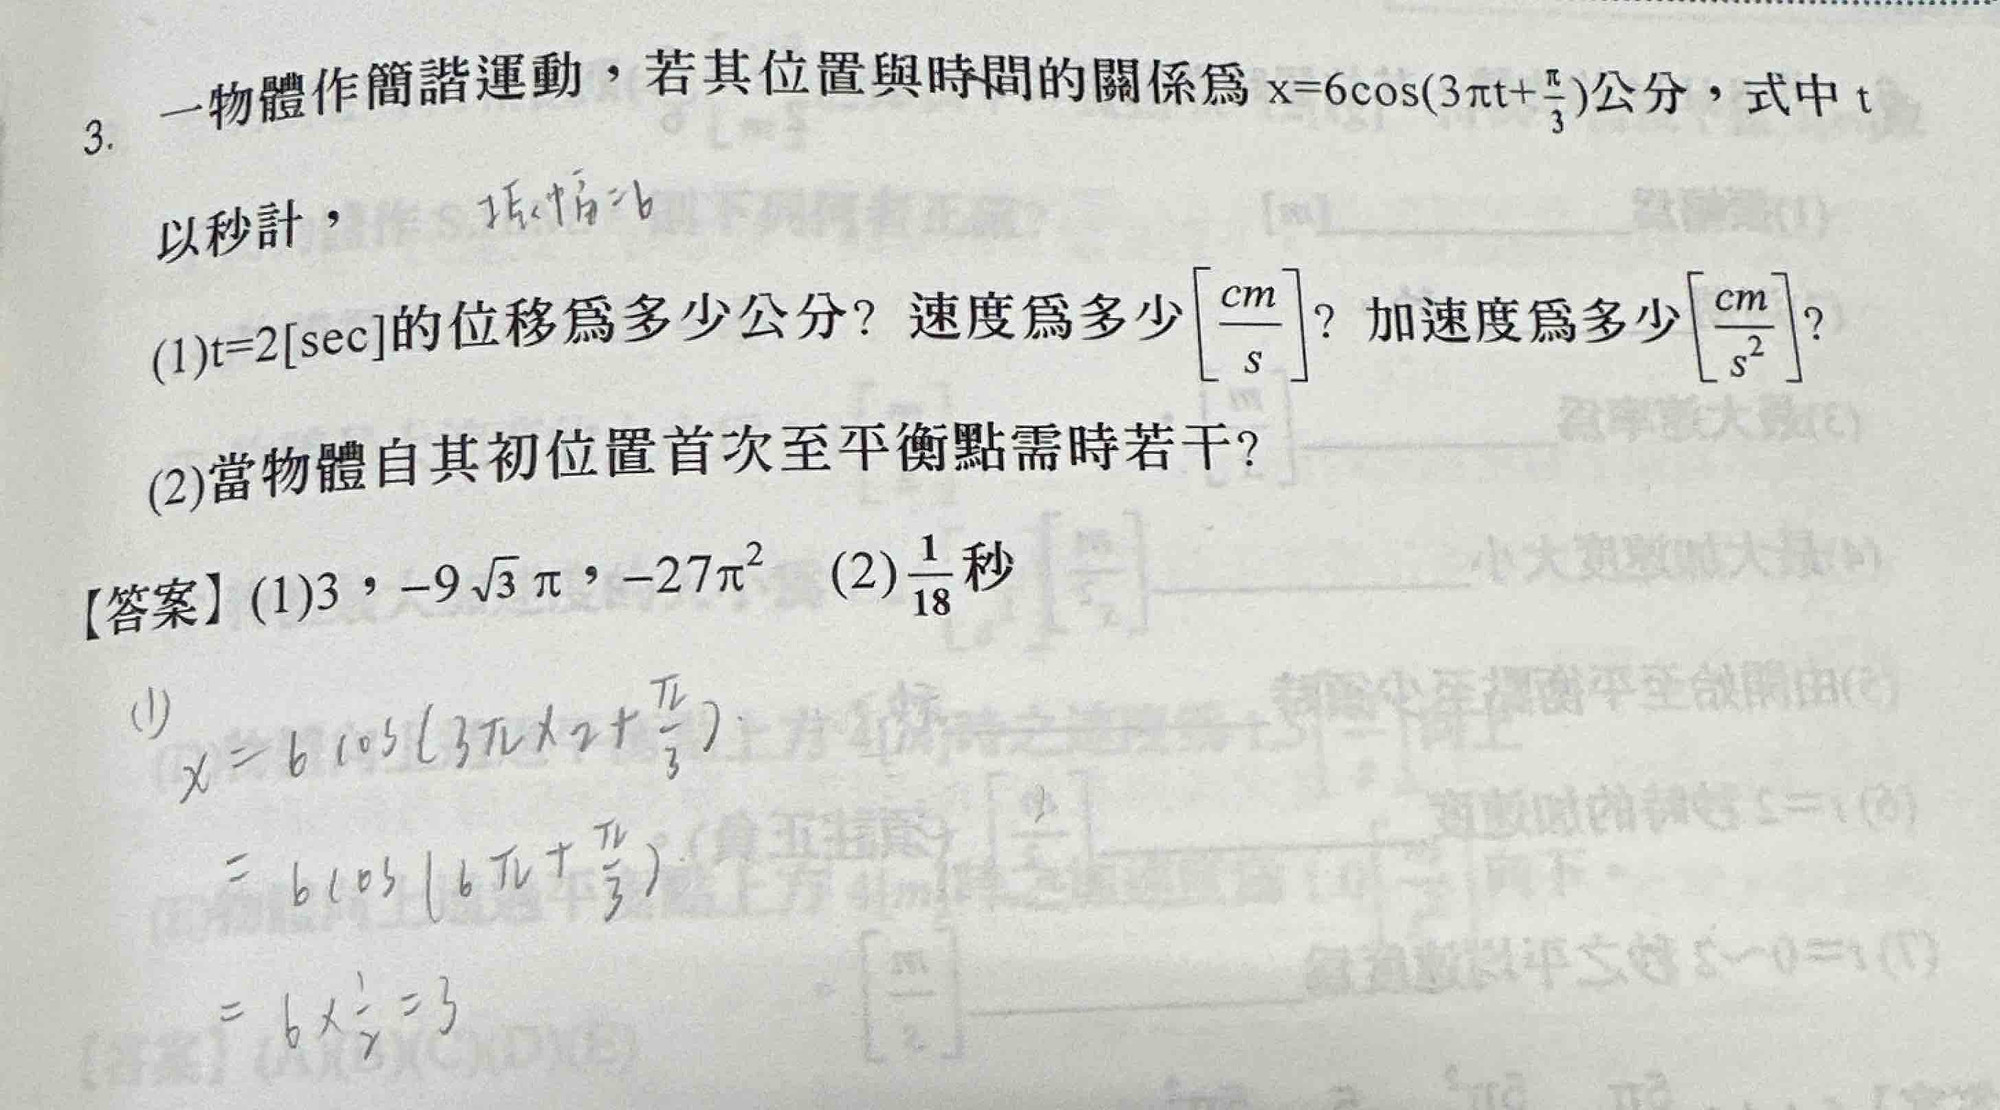 3. 一物體作簡諧運動,若其位置與時間的關係爲 x=6cos(3πt+π/3)公分,式中 t
以秒計,
振幅=6
(1)t=2[sec]的位移爲多少公分? 速度爲多少[cm/s]? 加速度爲多少[cm/s²]?
(2)當物體自其初位置首次至平衡點需時若干?
【答案】(1)3,−9√3π,−27π² (2)1/18秒
(1)
x = 6cos(3π×2+π/3).
= 6cos(6π+π/3).
= 6×1/2=3